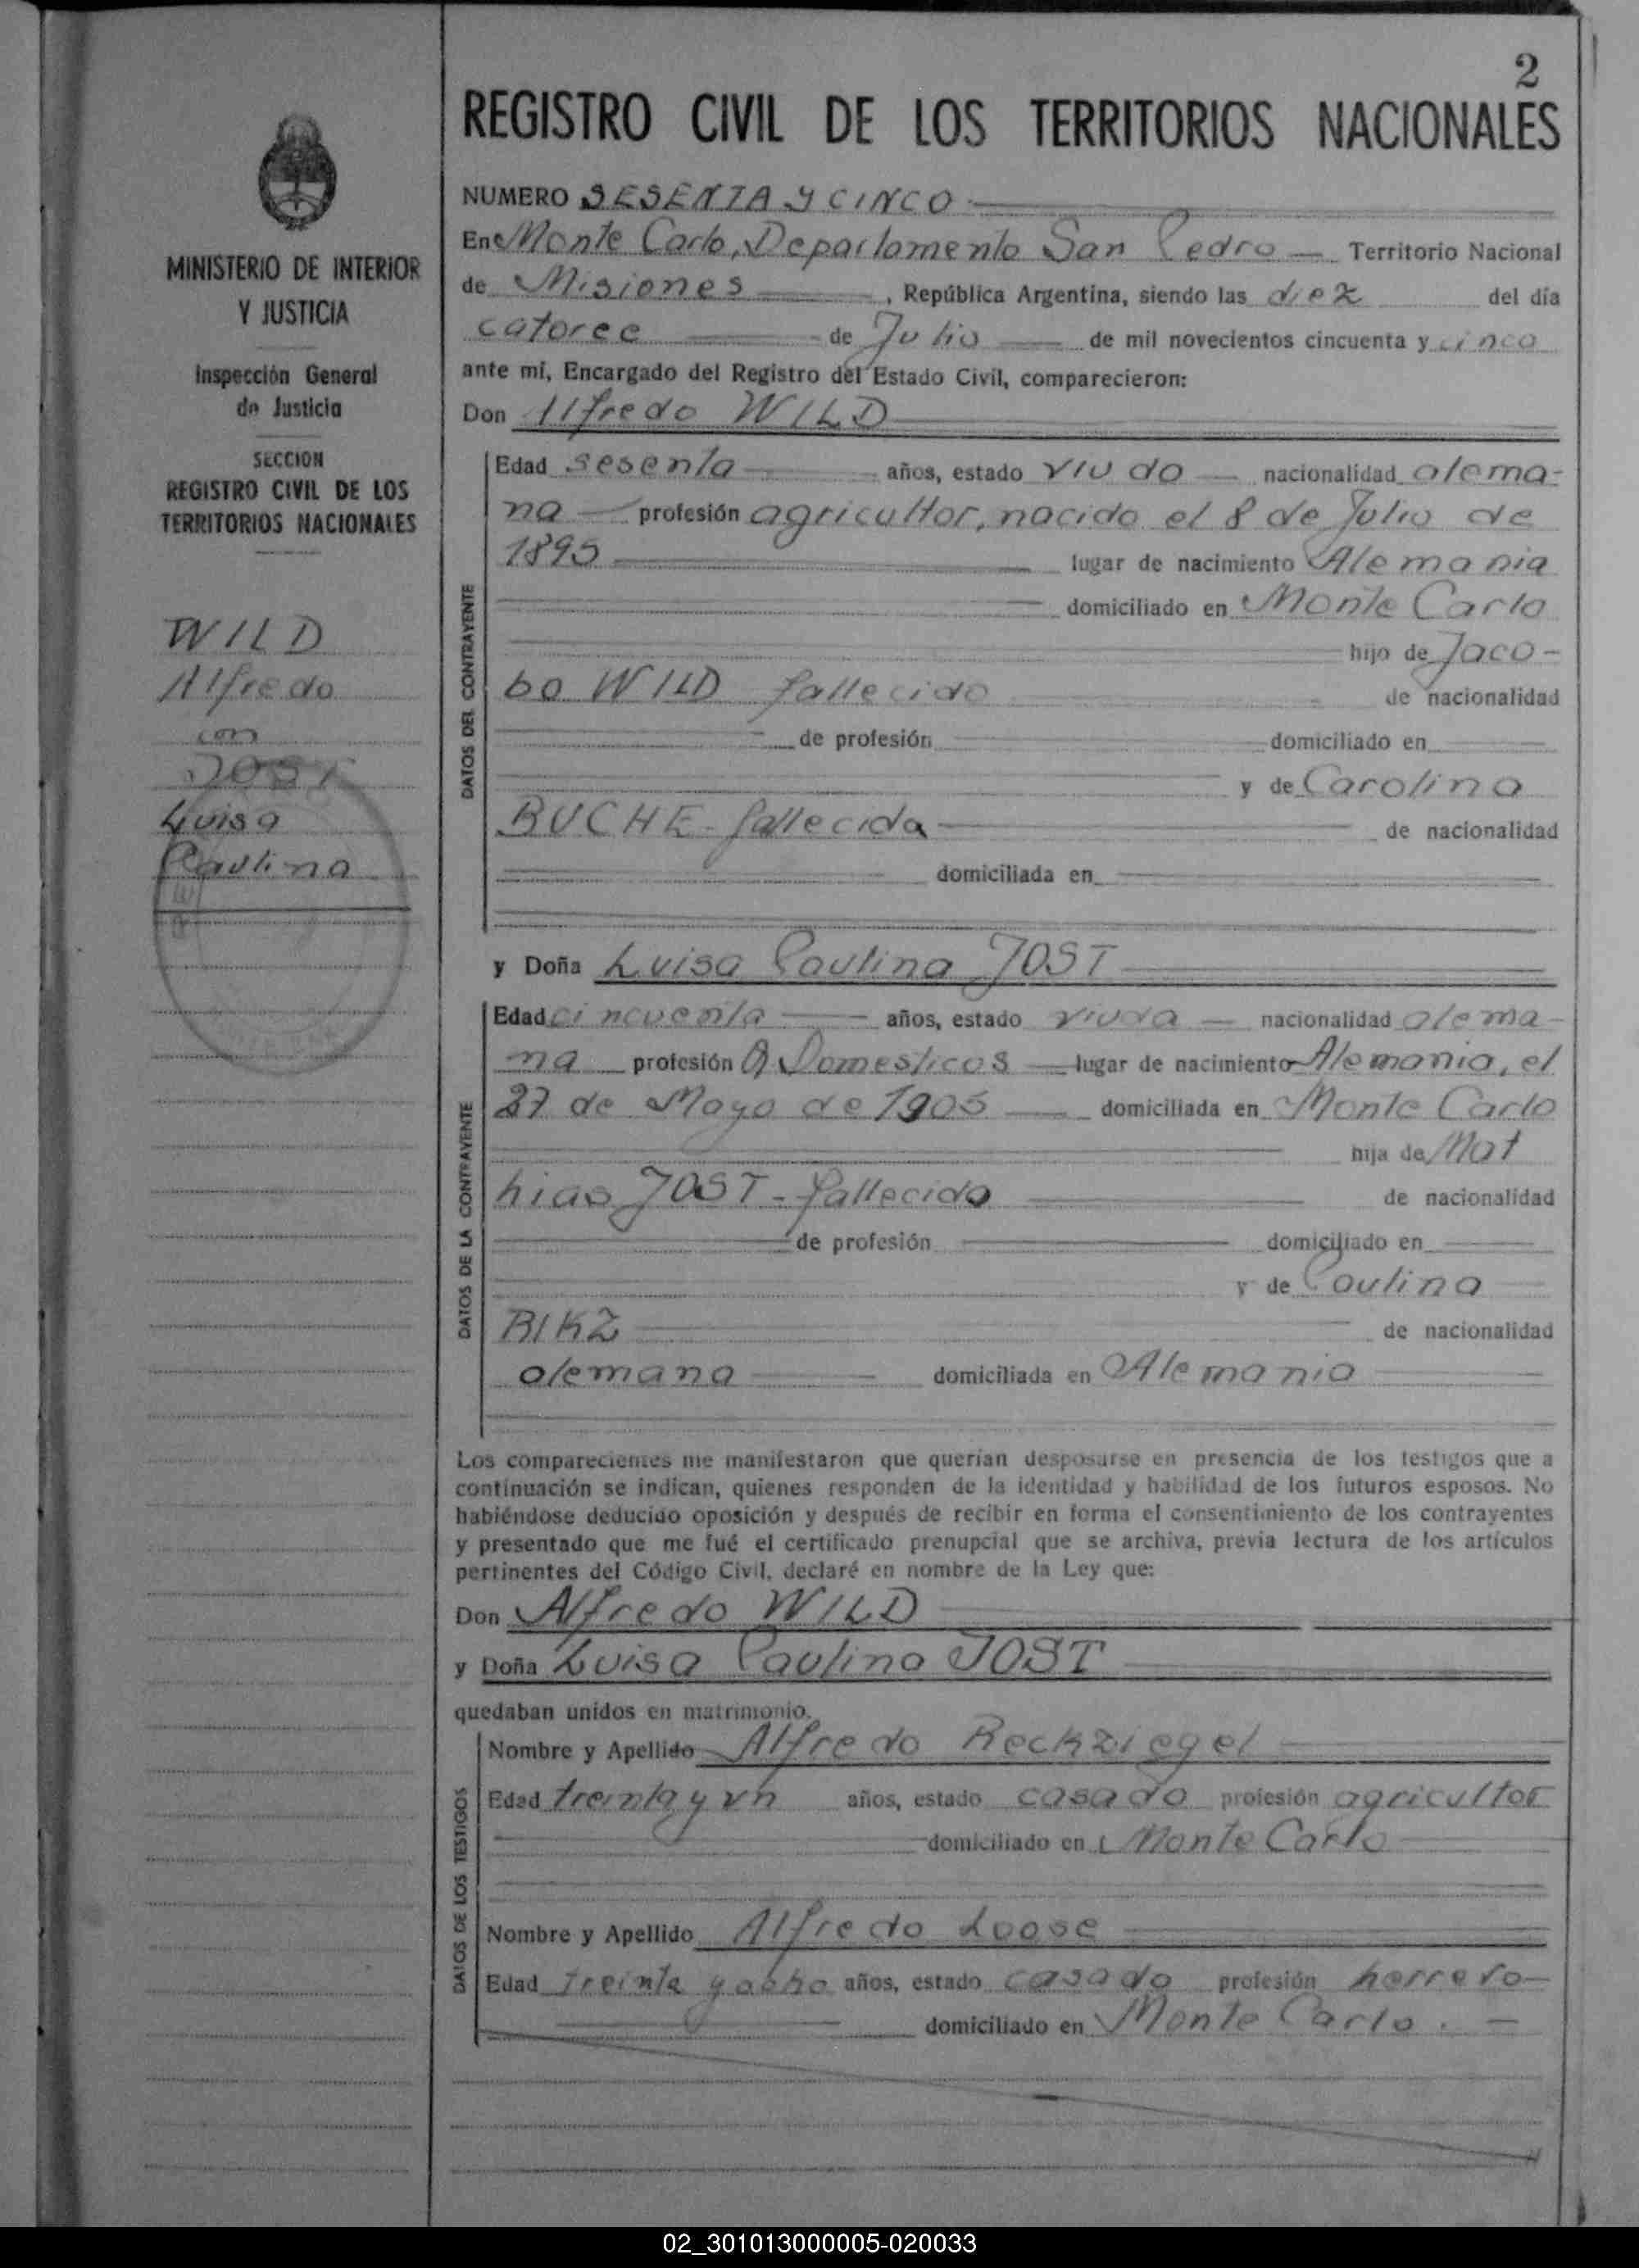 2
REGISTRO CIVIL DE LOS TERRITORIOS NACIONALES
MINISTERIO DE INTERIOR
Y JUSTICIA
Inspección General
de Justicia
SECCION
REGISTRO CIVIL DE LOS
TERRITORIOS NACIONALES
WILD
Alfredo
con
JOST
Luisa
Paulina
NUMERO SESENTA Y CINCO
En Monte Carlo, Departamento San Pedro — Territorio Nacional
de Misiones —, República Argentina, siendo las diez del día
catorce — de Julio — de mil novecientos cincuenta y cinco
ante mí, Encargado del Registro del Estado Civil, comparecieron:
Don Alfredo WILD
DATOS DEL CONTRAYENTE
Edad sesenta — años, estado viudo — nacionalidad alema-
na — profesión agricultor, nacido el 8 de Julio de
1895 — lugar de nacimiento Alemania
domiciliado en Monte Carlo
hijo de Jaco-
bo WILD fallecido de nacionalidad
de profesión domiciliado en
y de Carolina
BUCHE - fallecida — de nacionalidad
domiciliada en
y Doña Luisa Paulina JOST
DATOS DE LA CONTRAYENTE
Edad cincuenta — años, estado viuda — nacionalidad alema-
na profesión Q Domesticos — lugar de nacimiento Alemania, el
27 de Mayo de 1905 — domiciliada en Monte Carlo
hija de Mat
hias JOST - fallecido — de nacionalidad
de profesión domiciliado en
y de Paulina
BIKZ — de nacionalidad
alemana — domiciliada en Alemania
Los comparecientes me manifestaron que querían desposarse en presencia de los testigos que a
continuación se indican, quienes responden de la identidad y habilidad de los futuros esposos. No
habiéndose deducido oposición y después de recibir en forma el consentimiento de los contrayentes
y presentado que me fué el certificado prenupcial que se archiva, previa lectura de los artículos
pertinentes del Código Civil, declaré en nombre de la Ley que:
Don Alfredo WILD
y Doña Luisa Paulina JOST
quedaban unidos en matrimonio.
DATOS DE LOS TESTIGOS
Nombre y Apellido Alfredo Reckziegel
Edad treinta y un años, estado casado profesión agricultor
domiciliado en Monte Carlo
Nombre y Apellido Alfredo Loose
Edad treinta y ocho años, estado casado profesión herrero—
domiciliado en Monte Carlo. —
02_301013000005-020033